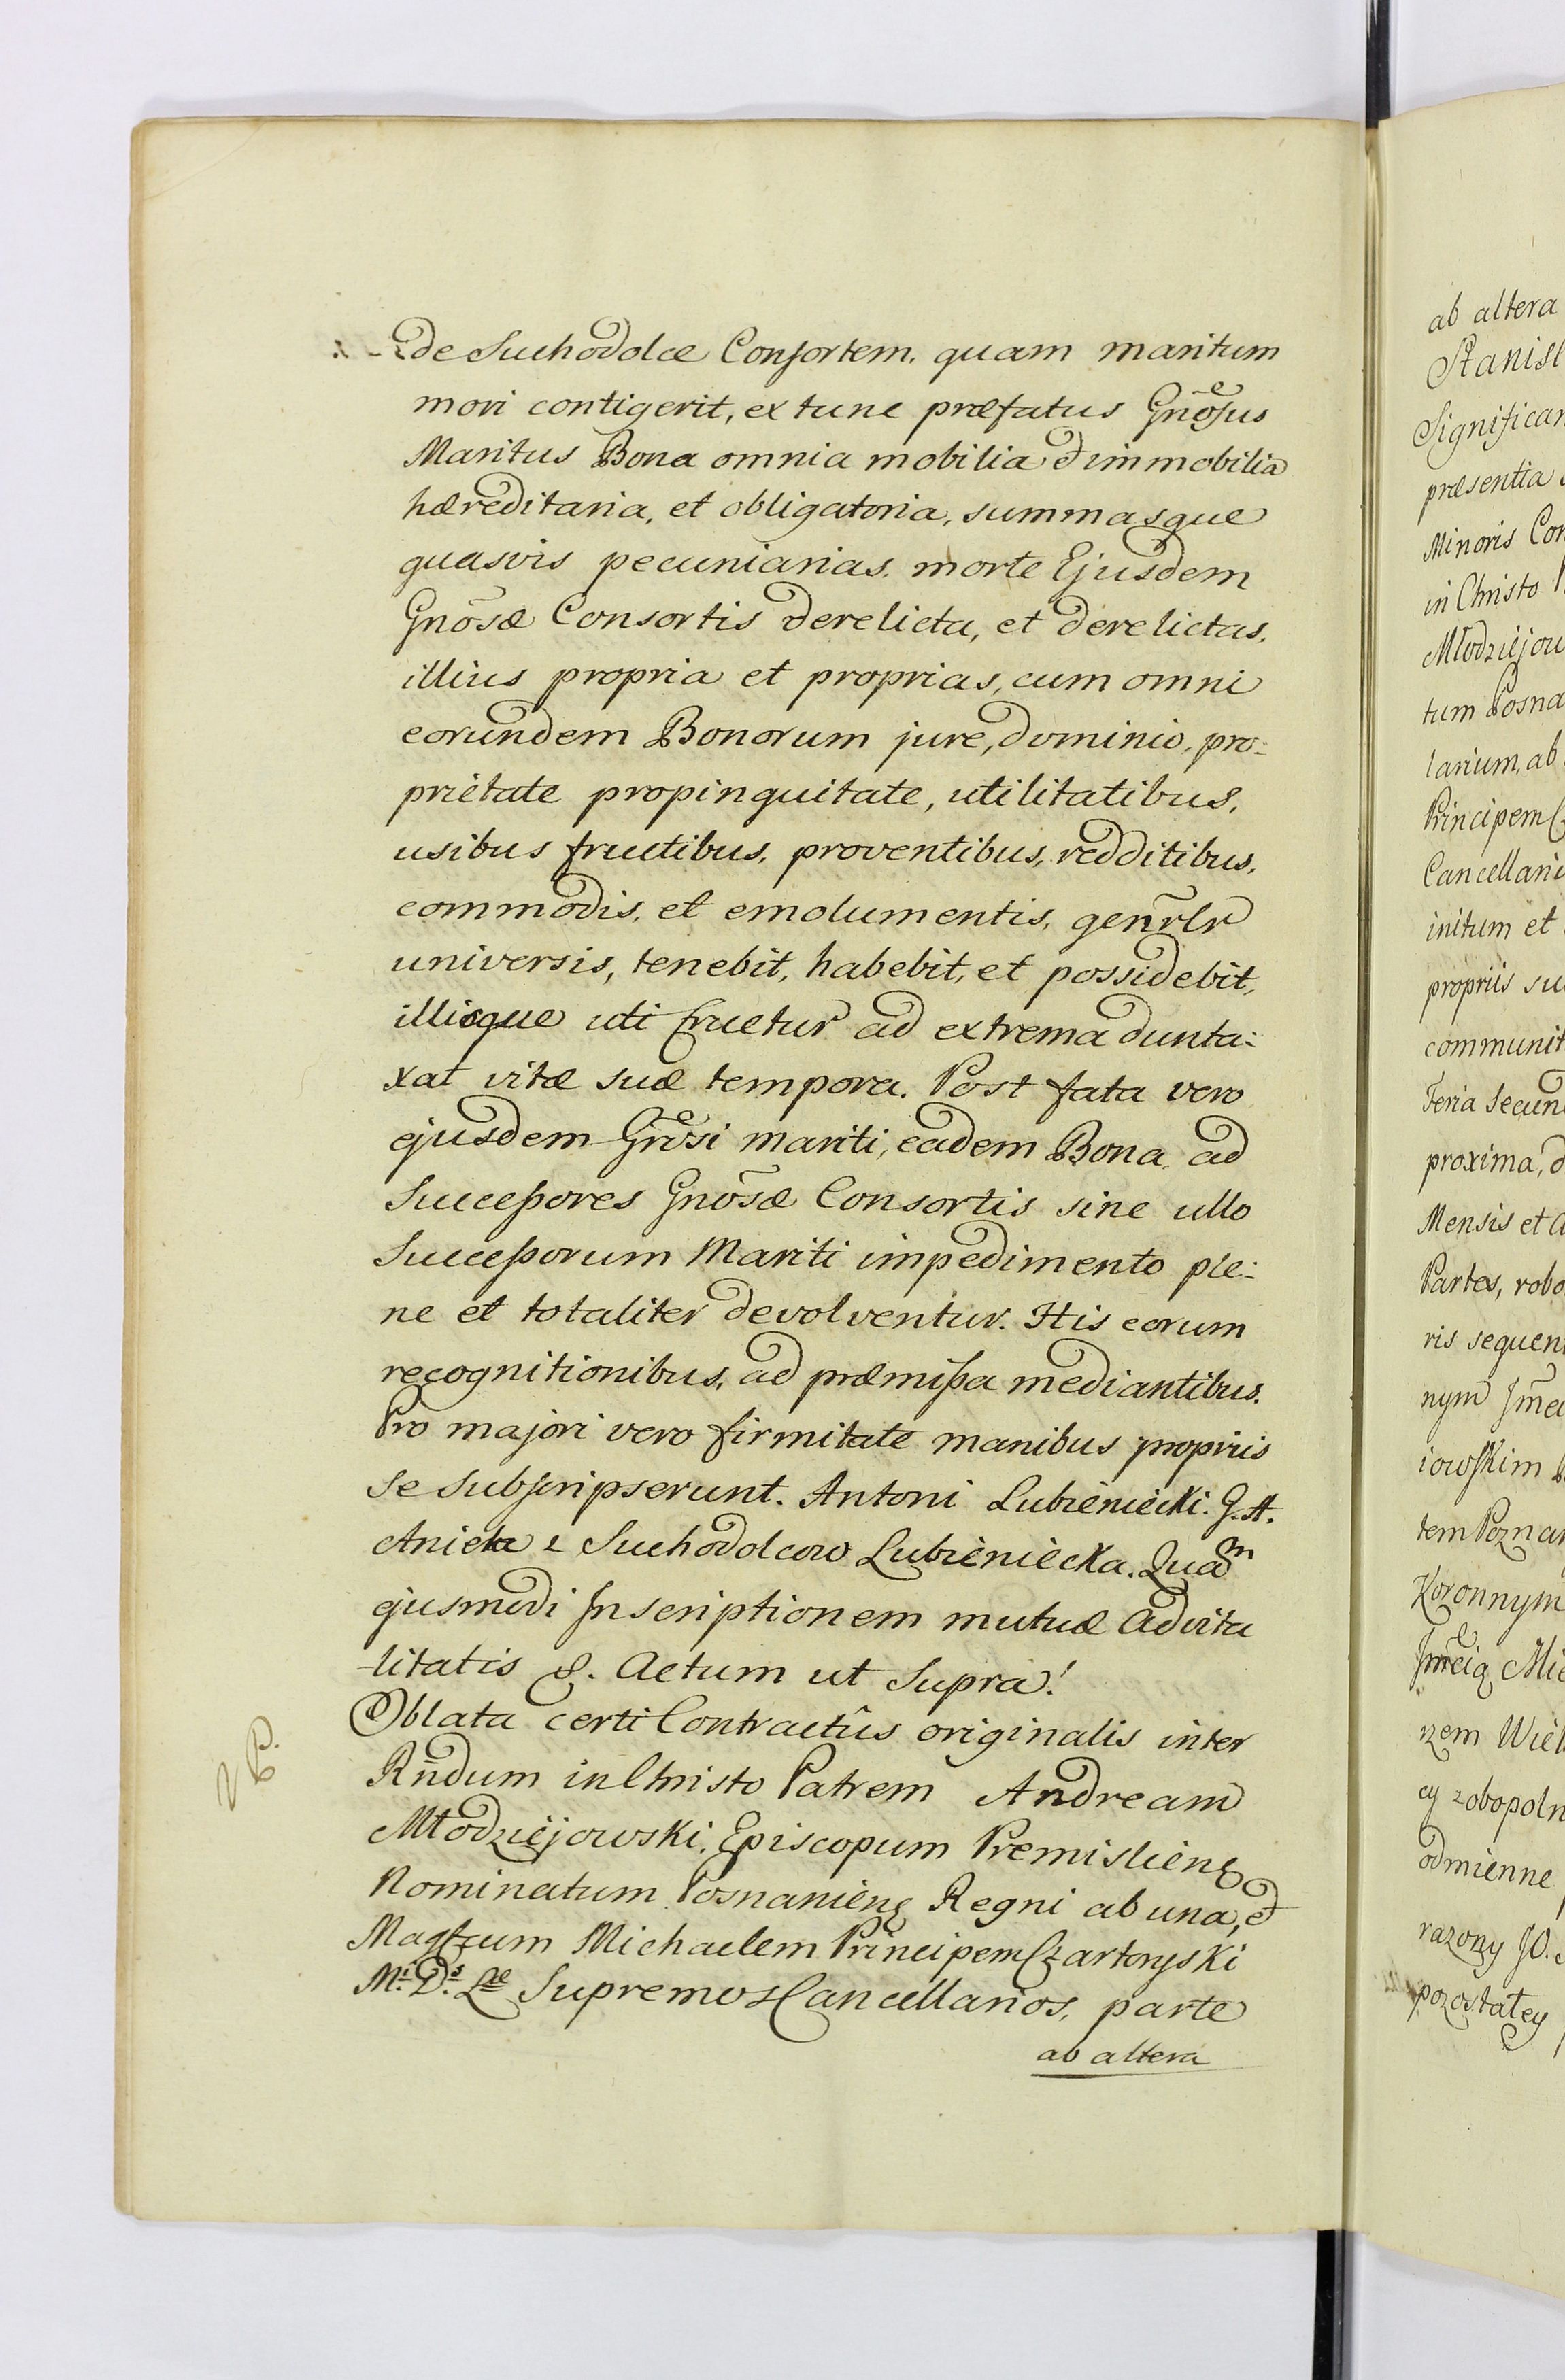 de Suchodolce Consortem, quam maritum
mori contigerit, ex tunc præfatus Gnōsus
Maritus Bona omnia mobilia et immobilia
hæreditaria, et obligatoria, summasque
quasvis pecuniarias, morte Ejusdem
Gnōsæ Consortis derelicta, et derelictas,
illius propria et proprias, cum omni
eorundem Bonorum jure, dominio, pro-
prietate propinquitate, utilitatibus,
usibus fructibus, proventibus, redditibus,
commodis, et emolumentis, genrlr
universis, tenebit, habebit, et possidebit,
illisque uti fruetur ad extrema dunta-
xat vitæ suæ tempora. Post fata vero
ejusdem Gnōsi mariti, eadem Bona, ad
Successores Gnōsæ Consortis sine ullo
Successorum Mariti impedimento ple-
ne et totaliter devolventur. His eorum
recognitionibus, ad præmissa mediantibus.
Pro majori vero firmitate manibus propriis
se subscripserunt. Antoni Lubieniecki. G. A.
Aniela z Suchodolcow Lubieniecka. Quam
ejusmodi Inscriptionem mutuæ advita
litatis &. Actum ut Supra!
Oblata certi Contractûs originalis inter
Rndum in Christo Patrem Andream
Młodziejowski, Episcopum Premislien
Nominatum Posnanien Regni ab una, et
Magfcum Michaelem Principem Czartoryski
M. D. L. Supremos Cancellarios, parte
ab altera
ab altera
Stanisl
Significan
præsentia
Minoris Con
in Christo
Młodziejow
tum Posna
larium, ab
Principem
Cancellari
initum et
propriis su
communit
Feria Secun
proxima, d
Mensis et
Partes, robo
ris sequen
nym Jmc
iowskim
tem Poznan
Koronnym
Mic
zem Wiel
cy zobopoln
odmienne
razony JO.
pozostałey